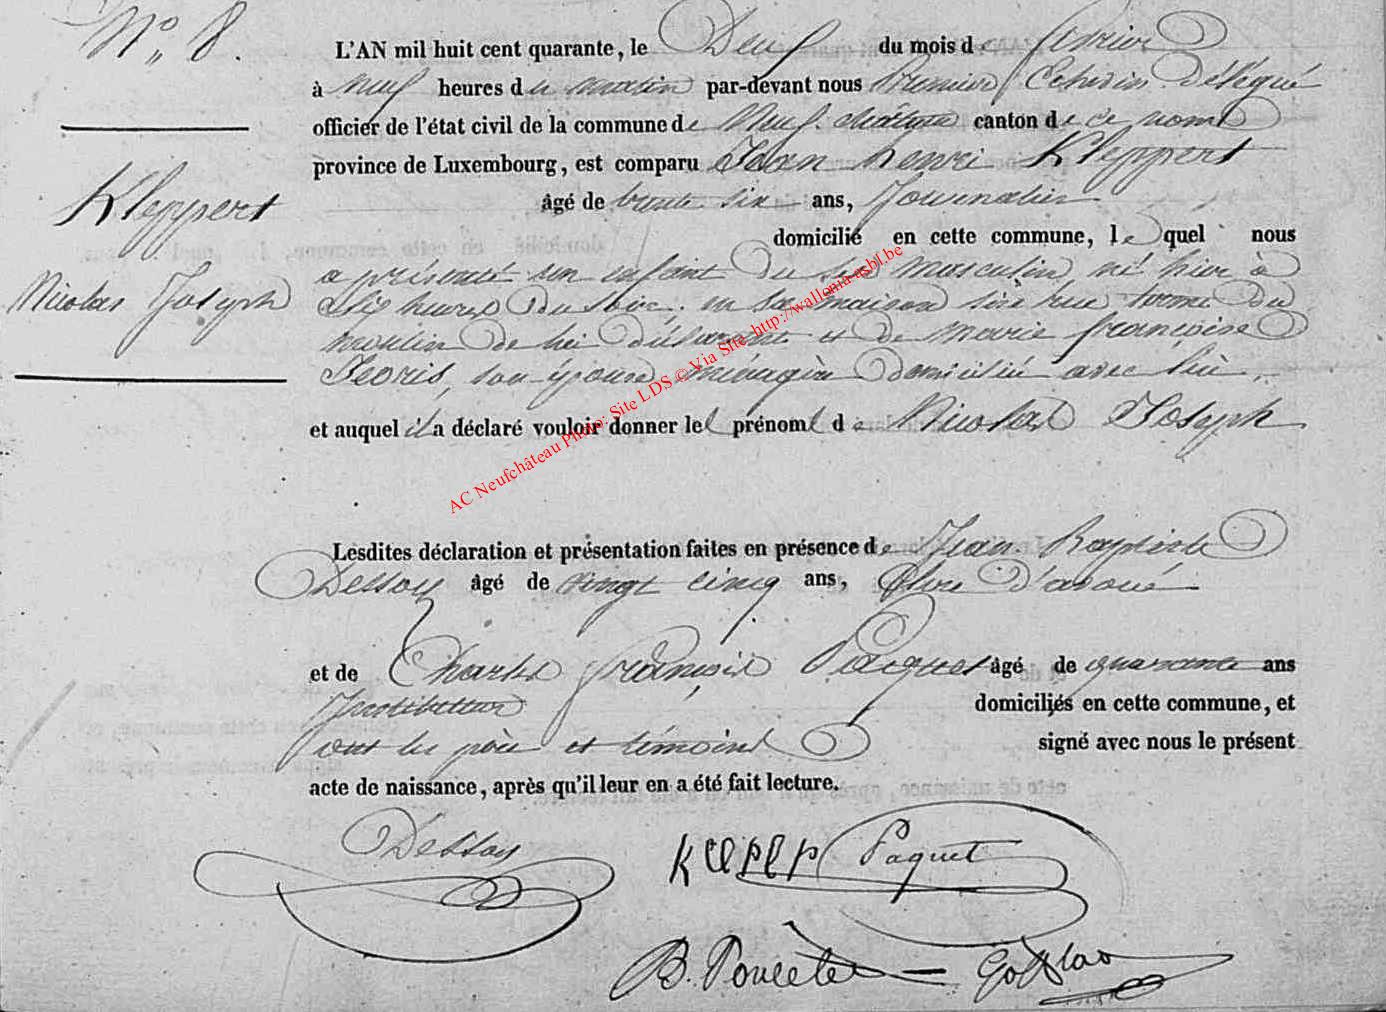 N° 8.
L'AN mil huit cent quarante, le Deux du mois de février
à neuf heures du matin par-devant nous Premier Echevin délégué
officier de l'état civil de la commune de Neufchâteau canton de ce nom
province de Luxembourg, est comparu Jean henri Kleppert
Kleppert
âgé de trente six ans, Journalier
domicilié en cette commune, lequel nous
Nicolas Joseph
a présenté un enfant du sexe masculin né hier à
Six heures du soir, en sa maison sise rue du
moulin de lui déclarant et de marie françoise
Jeoris, son épouse ménagère domiciliée avec lui,
et auquel il a déclaré vouloir donner le prénom de Nicolas Joseph
AC Neufchâteau Photo: Site LDS © Via Site http://wallonia-asbl.be
Lesdites déclaration et présentation faites en présence de Jean Baptiste
Dessoy âgé de vingt cinq ans, Clerc d'avoué
et de Charles françois Pacquet âgé de quarante ans
Instituteur domiciliés en cette commune, et
ont les père et témoins signé avec nous le présent
acte de naissance, après qu'il leur en a été fait lecture.
Dessoy Paquet
B. Poncelet